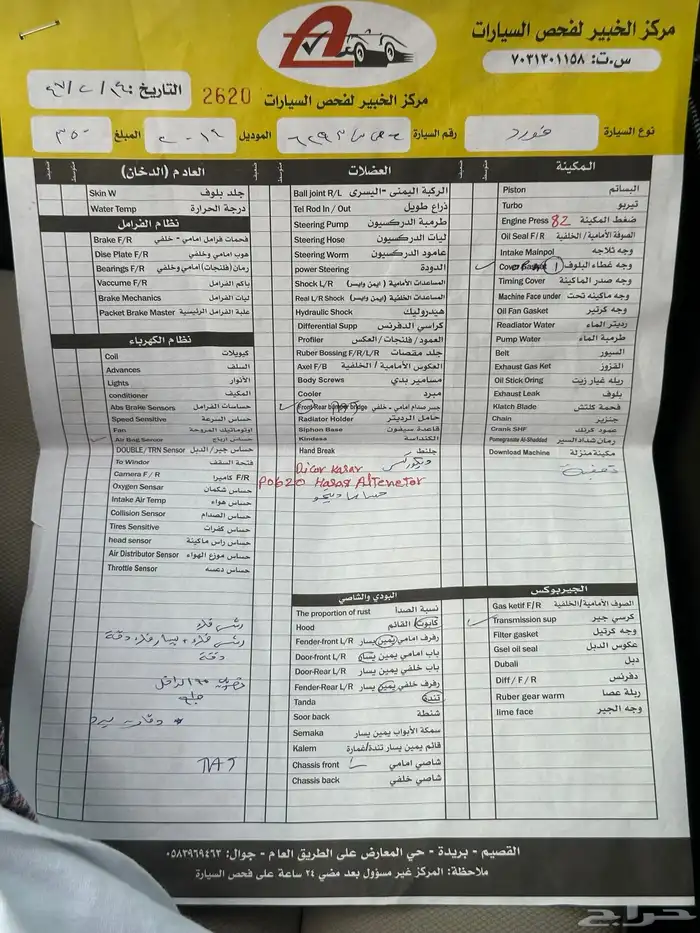 مركز الخبير لفحص السيارات
س.ت: ٧٠٣١٣٠١١٥٨
مركز الخبير لفحص السيارات
2620
التاريخ:
نوع السيارة فورد
رقم السيارة
الموديل ٢٠١٩
المبلغ ٣٥٠
المكينة
Piston البساتم
Turbo تيربو
Engine Press 82 ضغط المكينة
Oil Seal F/R الصوفة الأمامية/ الخلفية
Intake Mainpol وجه ثلاجه
وجه غطاء البلوف
Timing Cover وجه صدر الماكينة
Machine Face under وجه ماكينه تحت
Oil Fan Gasket وجه كرتير
Readiator Water رديتر الماء
Pump Water طرمبة الماء
Belt السيور
Exhaust Gas Ket القزوز
Oil Stick Oring ريله غيار زيت
Exhaust Leak بلوف
Klatch Blade فحمة كلتش
Chain جنزير
Crank SHF عمود كرنك
Pomegranite Al-Shedded رمان شداد السير
Download Machine مكينة منزلة
الجيربوكس
Gas ketif F/R الصوف الأمامية/الخلفية
Transmission sup كرسي جير
Filter gasket وجه كرتيل
Gsel oil seal عكوس الدبل
Dubali دبل
Diff / F / R دفرنس
Ruber gear warm ربلة عصا
lime face وجه الجير
العضلات
Ball joint R/L الركبة اليمنى -اليسرى
Tel Rod In / Out ذراع طويل
Steering Pump طرمبة الدركسيون
Steering Hose ليات الدركسيون
Steering Worm عامود الدركسيون
power Steering الدودة
Shock L/R المساعدات الأمامية (ايمن وايسر)
Real L/R Shock المساعدات الخلفية (ايمن وايسر)
Hydraulic Shock هيدروليك
Differential Supp كراسي الدفرنس
Profiler العمود/ فلنجات / العكس
Ruber Bossing F/R/L/R جلد مقصات
Axel F/B العكوس الأمامية / الخلفية
Body Screws مسامير بدي
Cooler مبرد
Front-Rear bumper bridge جسر صدام امامي - خلفي
Radiator Holder حامل الرديتر
Siphon Base قاعدة سيفون
Kindasa الكنداسة
Hand Break جلنط
P0620
البودي والشاصي
The proportion of rust نسبة الصدا
Hood كابوت القائم
Fender-front L/R رفرف امامي يمين يسار
Door-front L/R باب امامي يمين يسار
Door-Rear L/R باب خلفي يمين يسار
Fender-Rear L/R رفرف خلفي يمين يسار
Tanda تندة
Soor back شنطة
Semaka سمكة الأبواب يمين يسار
Kalem قائم يمين يسار تندة/غمارة
Chassis front شاصي امامي
Chassis back شاصي خلفي
العادم (الدخان)
Skin W جلد بلوف
Water Temp درجة الحرارة
نظام الفرامل
Brake F/R فحمات فرامل امامي - خلفي
Dise Plate F/R هوب امامي وخلفي
Bearings F/R رمان (فلنجات) امامي وخلفي
Vaccume F/R باكم الفرامل
Brake Mechanics ليات الفرامل
Packet Brake Master علبة الفرامل الرئيسية
نظام الكهرباء
Coil كويلات
Advances السلف
Lights الأنوار
conditioner المكيف
Abs Brake Sensors حساسات الفرامل
Speed Sensitive حساس السرعة
Fan اوتوماتيك المروحة
Air Bag Sensor حساس ارباج
DOUBLE/TRN Sensor حساس جير / الدبل
To Windor فتحة السقف
Camera F / R كاميرا F/R
Oxygen Sensar حساس شكمان
Intake Air Temp حساس هواء
Collision Sensor حساس الصدام
Tires Sensitive حساس كفرات
head sensor حساس راس ماكينة
Air Distributor Sensor حساس موزع الهواء
Throttle Sensor حساس دعسه
القصيم - بريدة - حي المعارض على الطريق العام - جوال: ٠٥٨٣٩٦٩٤٦٣
ملاحظة: المركز غير مسؤول بعد مضي ٢٤ ساعة على فحص السيارة
حراج